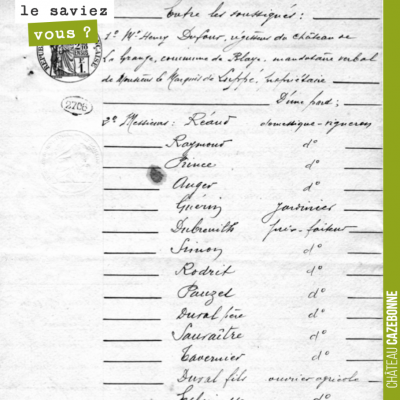 le saviez
vous ?
Entre les soussignés :
1° Mr Henry Dufour, régisseur du château de
La Grange, commune de Blaye, mandataire verbal
de Monsieur le Marquis de Luppé, propriétaire
D'une part ;
2706
2° Messieurs : Réaud domestique-vigneron
Raymond d°
Prince d°
Auger d°
Guérin jardinier
Dubreuilh prix-faiteur
Simon d°
Rodrit d°
Pauzet d°
Duval père d°
Sauraître d°
Tavernier d°
Duval fils ouvrier agricole
CHÂTEAU CAZEBONNE